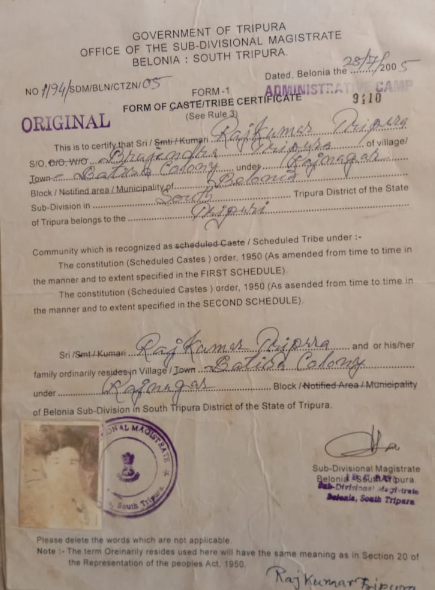 GOVERNMENT OF TRIPURA
OFFICE OF THE SUB-DIVISIONAL MAGISTRATE
BELONIA : SOUTH TRIPURA.
Dated, Belonia the 28/7/2005
NO 1/94/SDM/BLN/CTZN/05
ADMINISTRATIVE CAMP
FORM -1
9110
FORM OF CASTE/TRIBE CERTIFICATE
(See Rule 3)
ORIGINAL
This is to certify that Sri / Smti / Kumari Rajkumar Tripura
S/O, D/O, W/O Tripura of village/
Town Batisa Colony under Rajnagar
Block / Notified area / Municipality of Belonia
Sub-Division in South Tripura District of the State
of Tripura belongs to the Tripuri
Community which is recognized as scheduled Caste / Scheduled Tribe under :-
The constitution (Scheduled Castes ) order, 1950 (As amended from time to time in
the manner and to extent specified in the FIRST SCHEDULE).
The constitution (Scheduled Castes ) order, 1950 (As amended from time to time in
the manner and to extent specified in the SECOND SCHEDULE).
Sri /Smt / Kumari Rajkumar Tripura and or his/her
family ordinarily resides in Village / Town Batisa Colony
under Rajnagar Block / Notified Area / Municipality
of Belonia Sub-Division in South Tripura District of the State of Tripura.
MAGISTRATE
South Tripura
Sub-Divisional Magistrate
Belonia, South Tripura.
Sub-Divisional Magistrate
Belonia, South Tripura
Please delete the words which are not applicable.
Note :- The term Oreinarily resides used here will have the same meaning as in Section 20 of
the Representation of the peoples Act, 1950.
Rajkumar Tripura